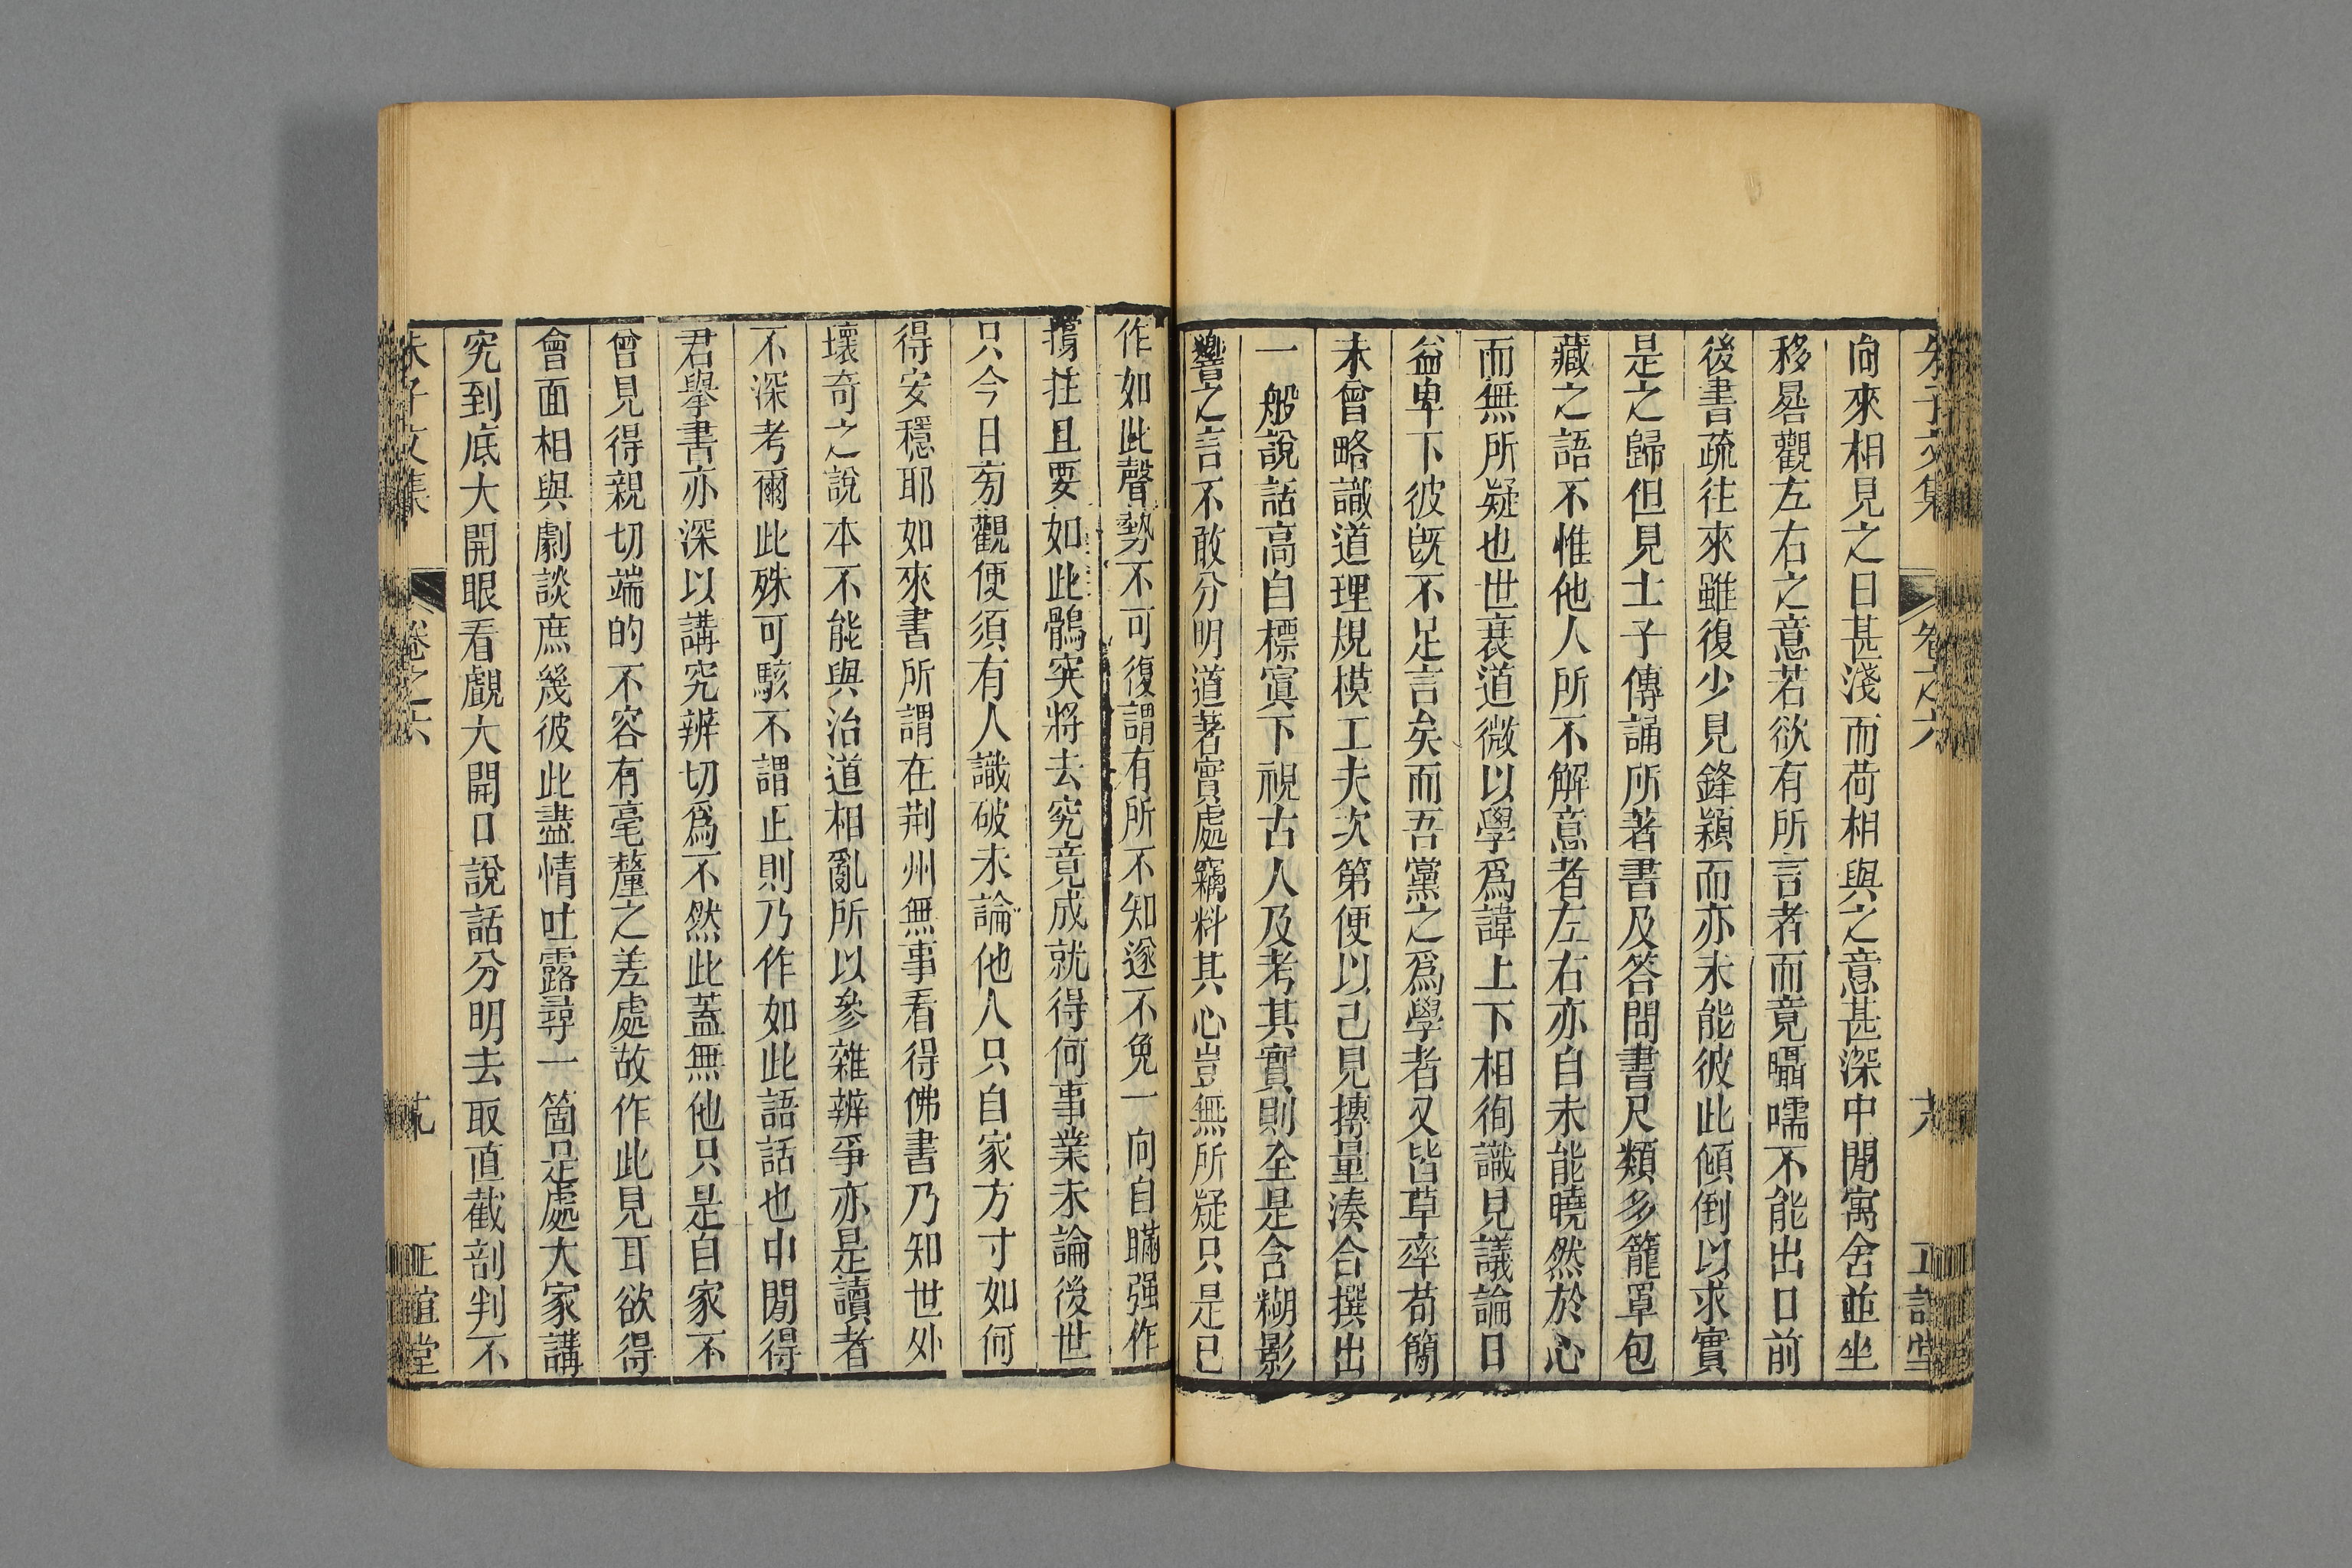 朱子文集
卷之六
向來相見之日甚淺而荷相與之意甚深中閒寓舍並坐
移晷觀左右之意若欲有所言者而竟囁嚅不能出口前
後書疏往來雖復少見鋒穎而亦未能彼此傾倒以求實
是之歸但見士子傳誦所著書及答問書尺類多籠罩包
藏之語不惟他人所不解意者左右亦自未能曉然於心
而無所疑也世衰道微以學爲諱上下相徇識見議論日
益卑下彼旣不足言矣而吾黨之爲學者又皆草率苟簡
未曾略識道理規模工夫次第便以己見摶量湊合撰出
一般說話高自標寘下視古人及考其實則全是含糊影
響之言不敢分明道著實處竊料其心豈無所疑只是已
作如此聲勢不可復謂有所不知遂不免一向自瞞强作
撐拄且要如此鶻突將去究竟成就得何事業未論後世
只今日旁觀便須有人識破未論他人只自家方寸如何
得安穩耶如來書所謂在荆州無事看得佛書乃知世外
壞奇之說本不能與治道相亂所以參雜辨爭亦是讀者
不深考爾此殊可駭不謂正則乃作如此語話也中閒得
君舉書亦深以講究辨切爲不然此蓋無他只是自家不
曾見得親切端的不容有毫釐之差處故作此見耳欲得
會面相與劇談庶幾彼此盡情吐露尋一箇是處大家講
究到底大開眼看覷大開口說話分明去取直截剖判不
朱子文集
卷之六
正誼堂